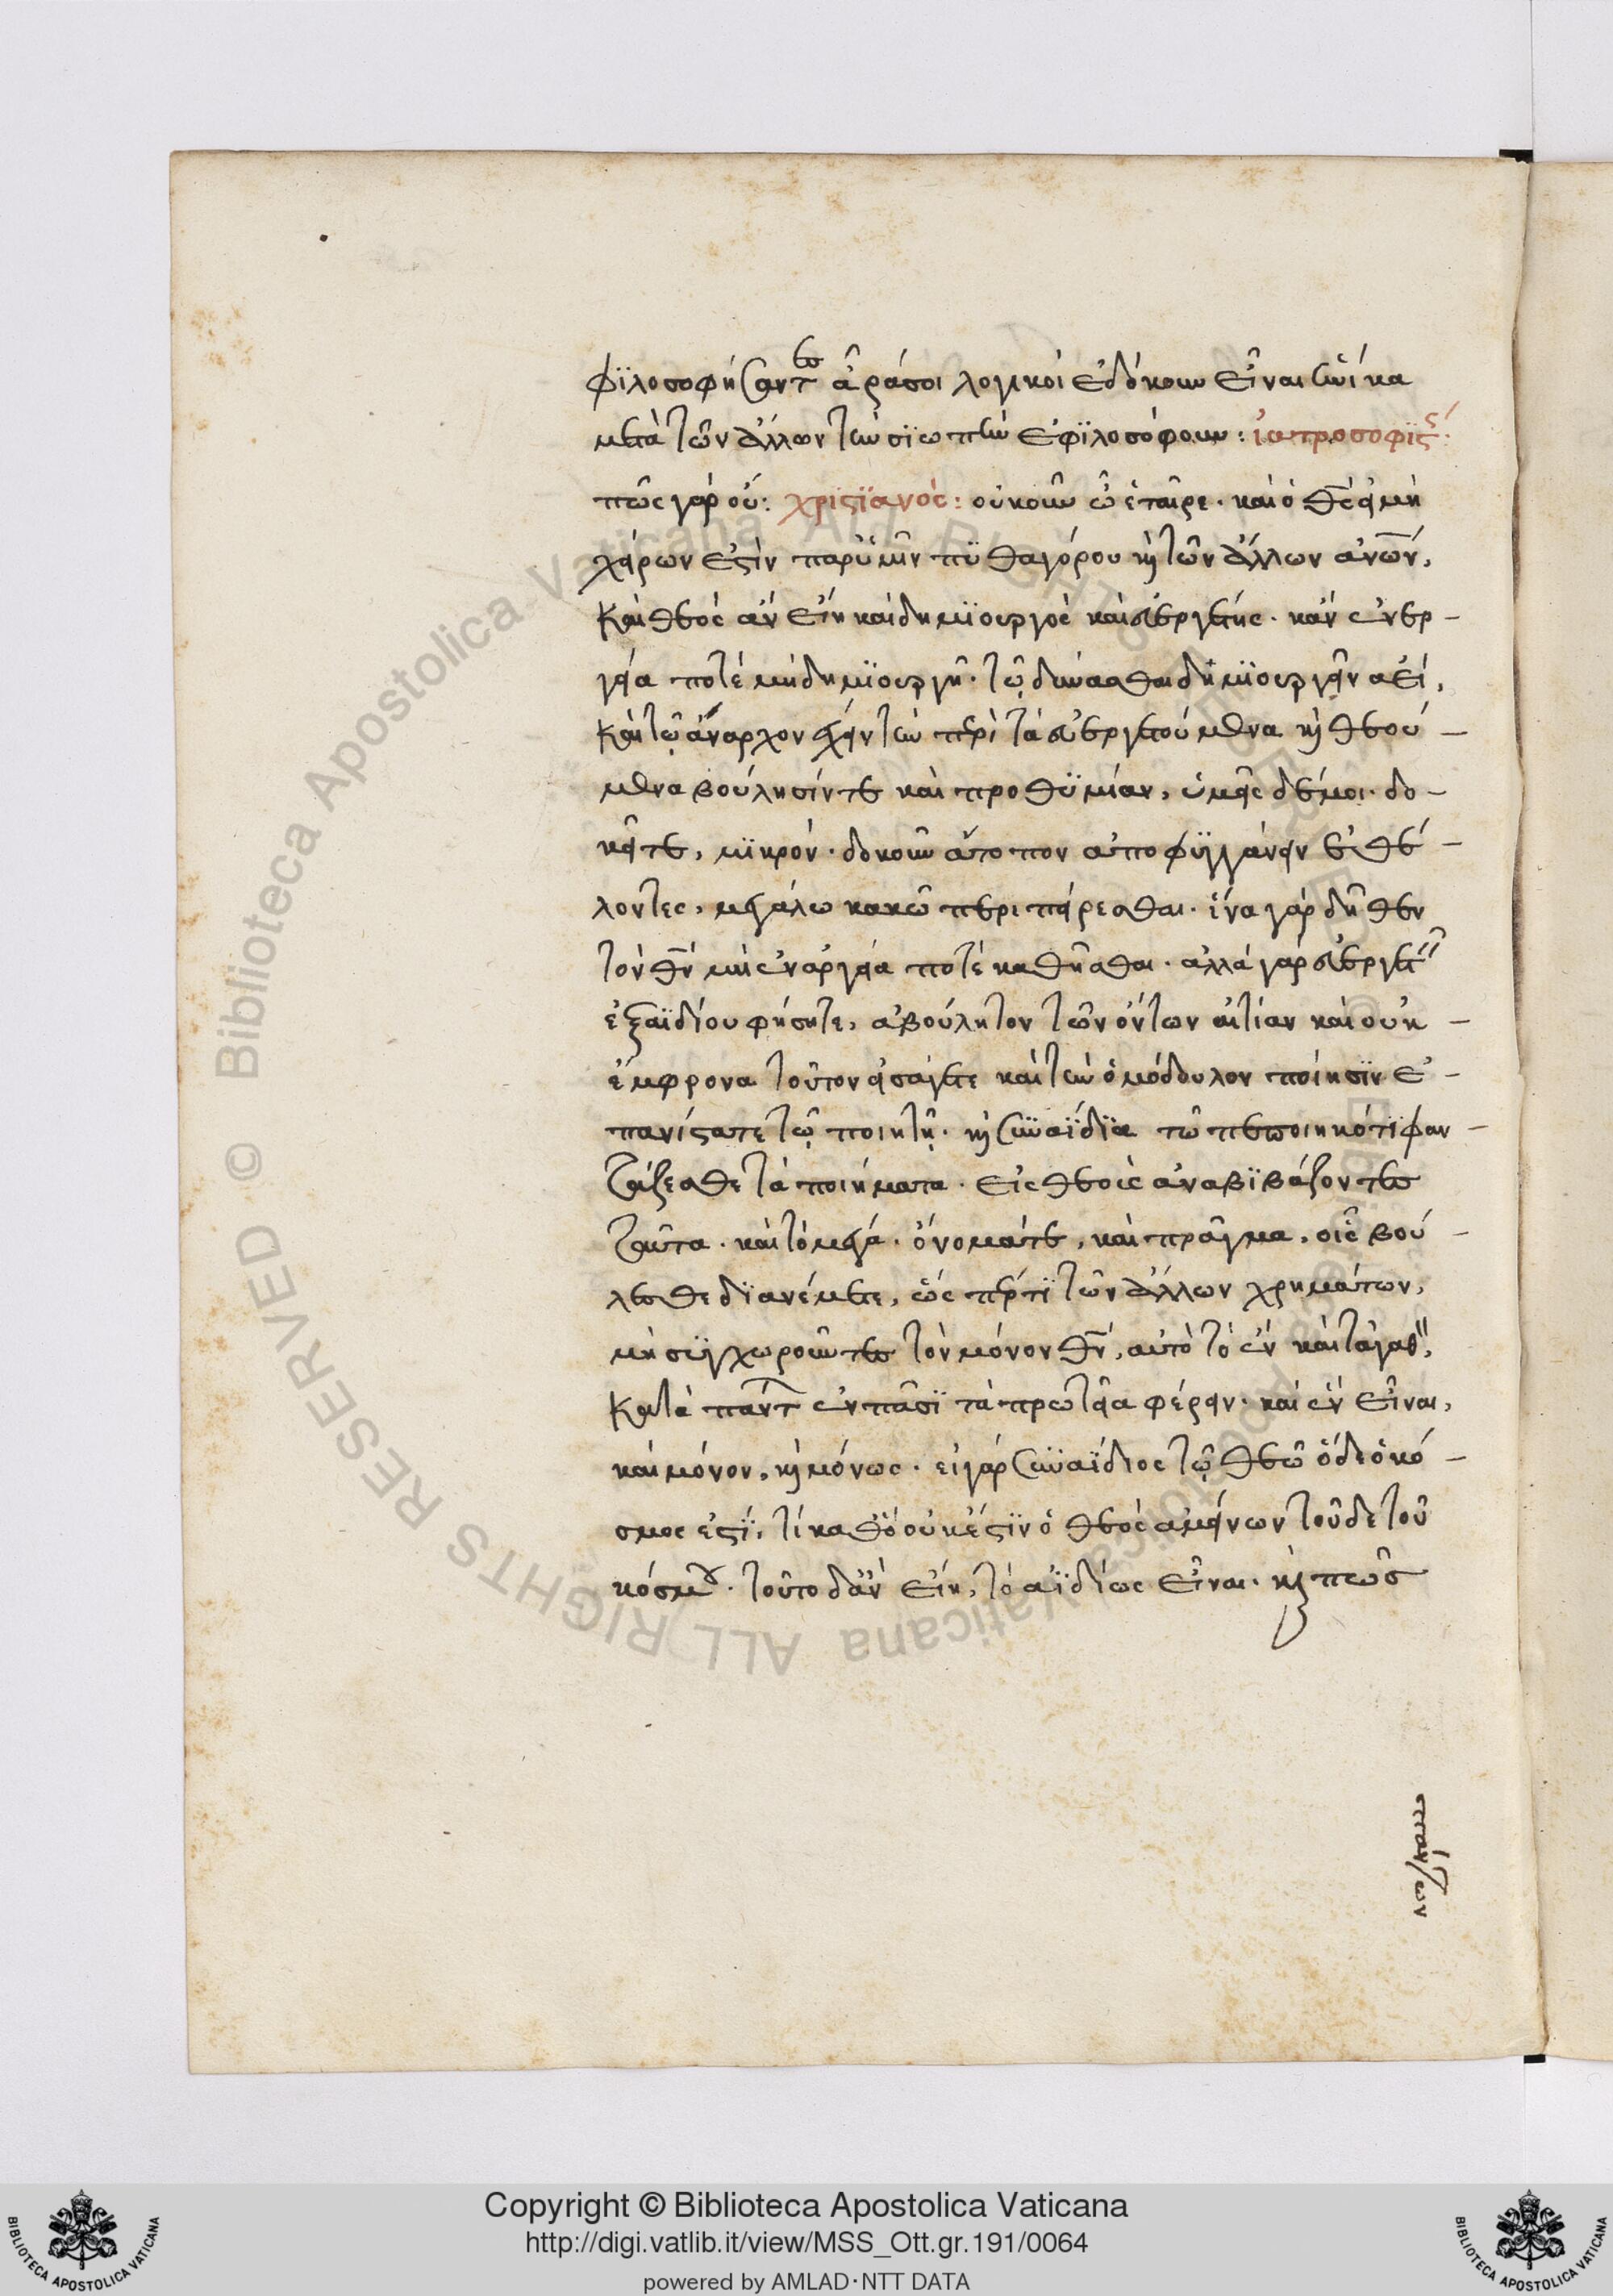 φϊλοσοφήσαντες ἆρά σοι λογικοὶ ἐδόκουν εἶναι ἡνίκα
μετὰ τῶν ἄλλων τὴν σϊωπὴν ἐφϊλοσόφουν : ἰατροσοφϊστ́:
πῶς γὰρ οὔ: χριστϊανὸς : οὐκοῦν ὦ ἑταῖρε · καὶ ὁ θς εἰ μὴ
χείρων ἐστὶν παρ' ὑμῖν πϋθαγόρου κὶ τῶν ἄλλων ἀνων,
καὶ θεὸς ἂν εἴη καὶ δημϊουργὸς καὶ εὐεργέτης · κἂν ἐνερ-
γεία ποτὲ μὴ δημϊουργῆ · τῷ δύνασθαι δημϊουργεῖν ἀεί,
καὶ τῷ ἄναρχον ἔχειν τὴν περὶ τὰ εὐεργετούμενα κὶ θεού-
μενα βούλησίν τε καὶ προθϋμίαν, ὑμεῖς δέ μοι · δο-
κεῖτε, μϊκρὸν · δοκοῦν ἄτοπον ἀποφϋγγάνειν ἐθέ-
λοντες, μεγάλω κακῶ περιπείρεσθαι · ἵνα γὰρ δῆθεν
τὸν θν μὴ ἐναργεία ποτὲ καθῆσθαι · ἀλλὰ γὰρ εὐεργετεῖν
ἐξ ἀϊδίου φήσητε, ἀβούλητον τῶν ὄντων αἰτίαν καὶ οὐκ
ἔμφρονα τοῦτον εἰσάγετε καὶ τὴν ὁμόδουλον ποίησϊν ἐ-
πανίστατε τῷ ποιητῇ · κὶ συναΐδϊα τῶ πεποιηκότϊ φαν
τάζεσθε τὰ ποιήματα · εἰς θεοὺς ἀναβϊβάζοντες
ταῦτα · καὶ τὸ μέγα · ὄνομά τε, καὶ πρᾶγμα, οἷς βού-
λεσθε δϊανέμετε, ὥς περ τϊ τῶν ἄλλων χρημάτων,
μὴ συγχωροῦντες τὸν μόνον θν, αὐτὸ τὸ ἓν καὶ τἀγαθ",
κατὰ πάντα ἐν πᾶσϊ τὰ πρωτεῖα φέρειν · καὶ ἓν εἶναι,
καὶ μόνον, κὶ μόνως · εἰ γὰρ συναΐδιος τῷ θεῶ ὅδε ὁ κό-
σμος ἐστϊ, τί καθὸ οὐκ ἔστϊν ὁ θεὸς ἀμείνων τοῦδε τοῦ
κόσμου · τοῦτο δ' ἂν εἴη, τὸ ἀϊδίως εἶναι · κὶ πῶς